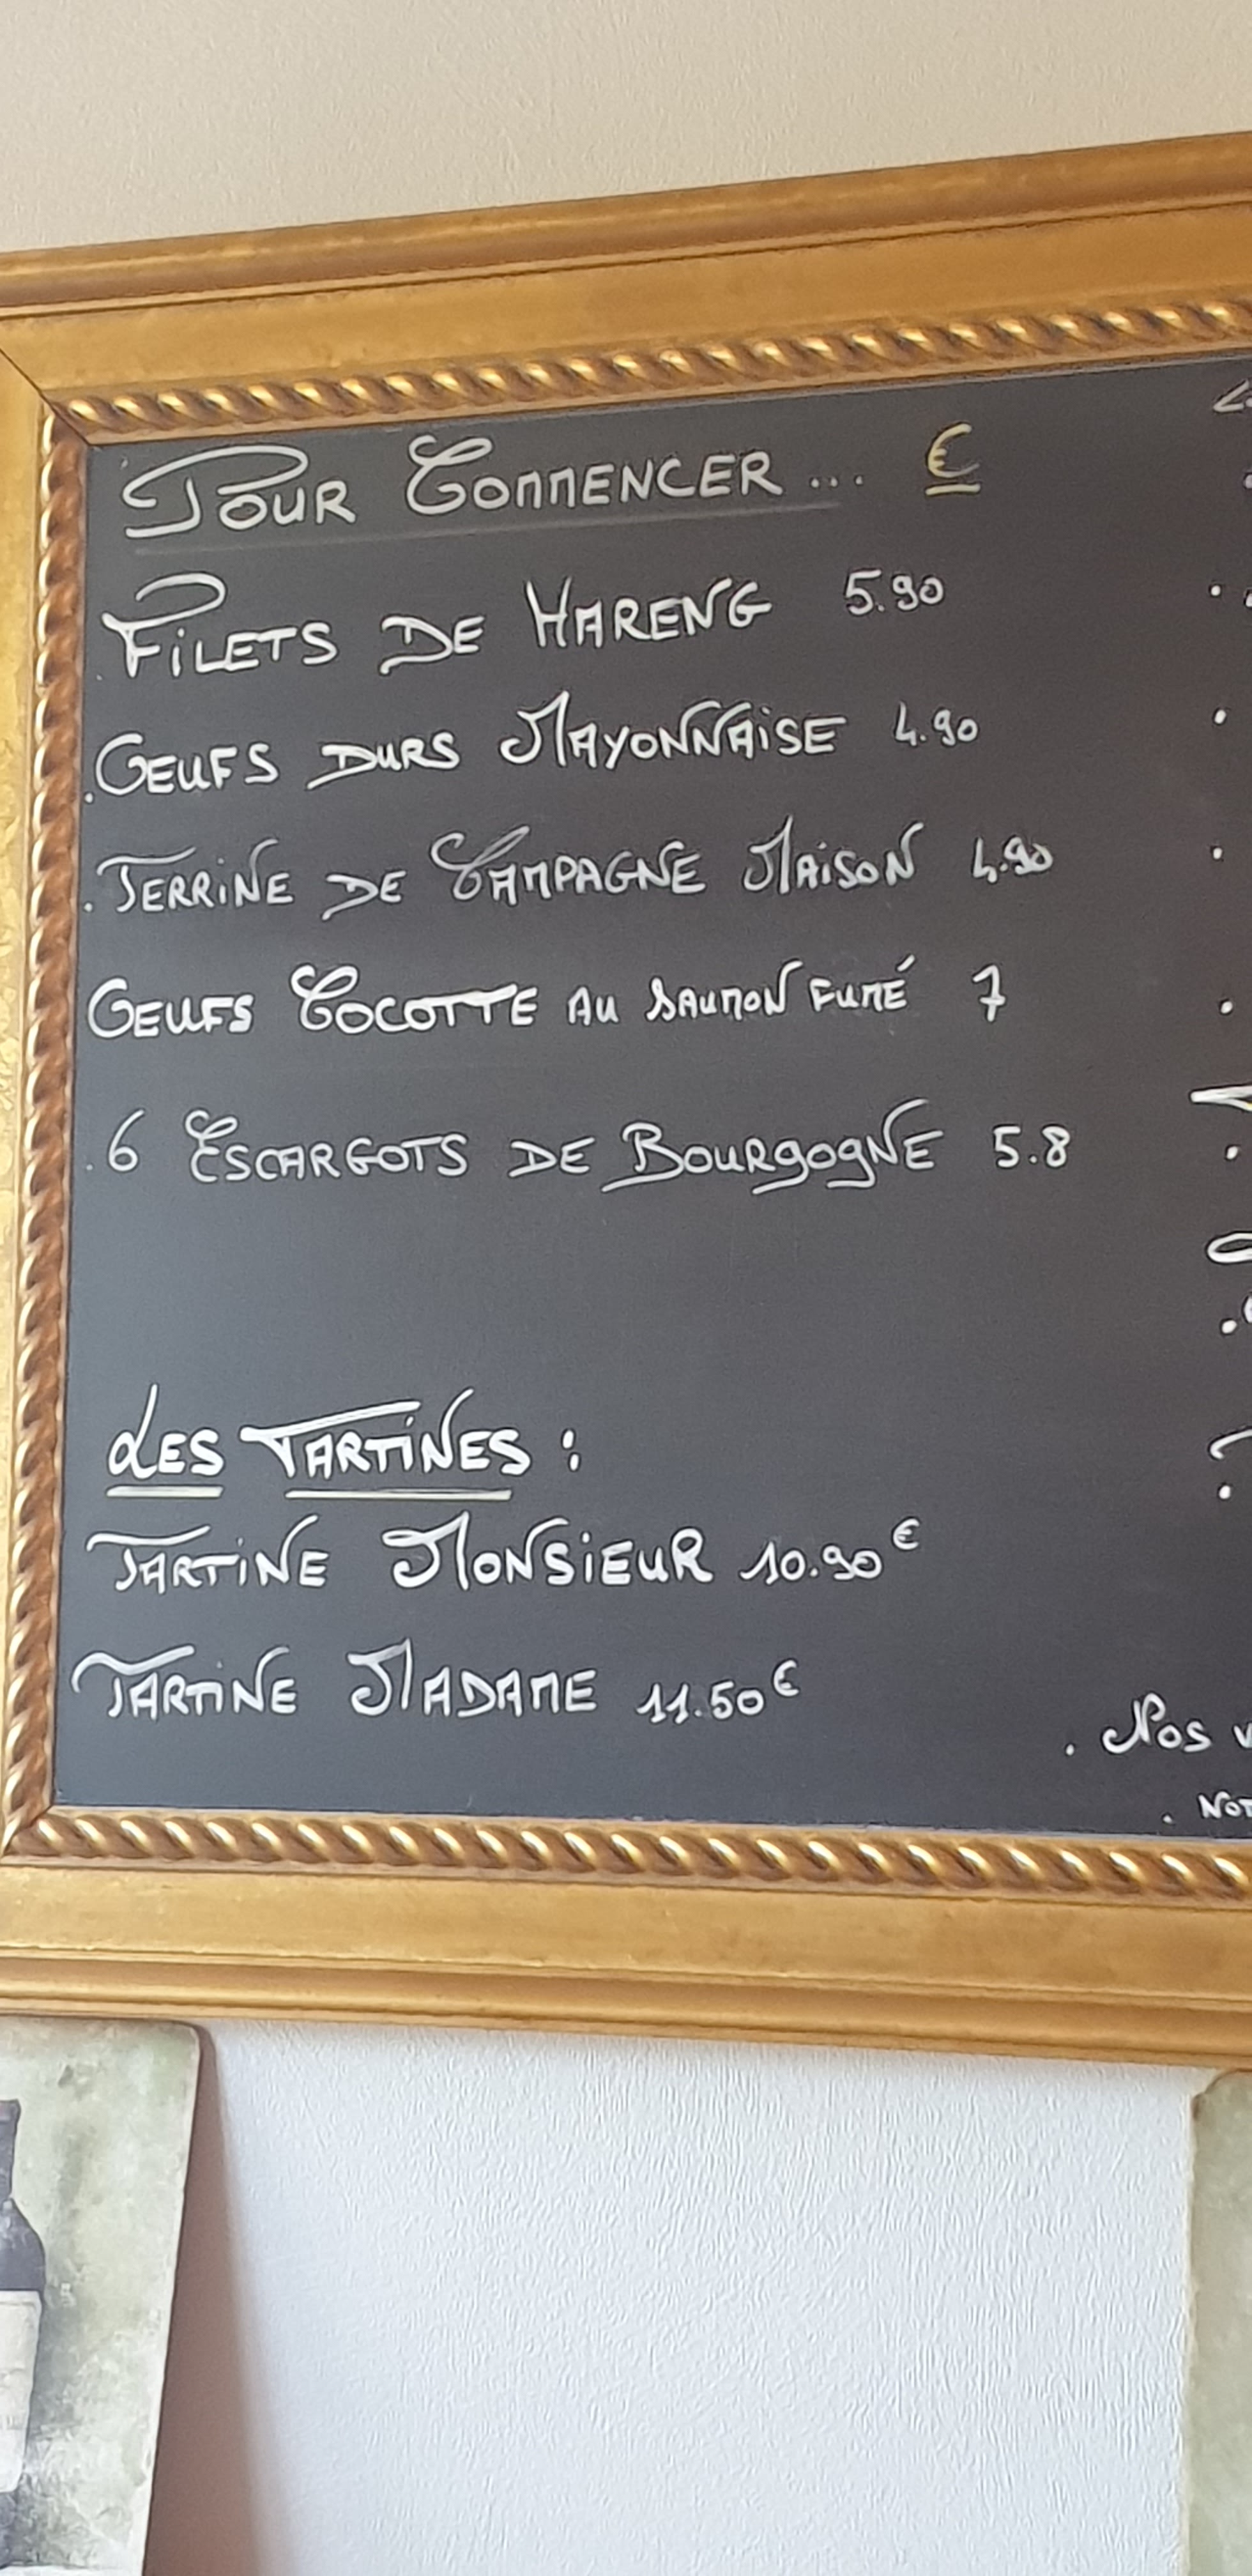 Pour Commencer... €
Filets de Hareng 5.90
.Oeufs durs Mayonnaise 4.90
.Terrine de Campagne Maison 4.90
Oeufs Cocotte au saumon fumé 7
.6 Escargots de Bourgogne 5.8
Les Tartines :
Tartine Monsieur 10.90€
Tartine Madame 11.50€
. Nos